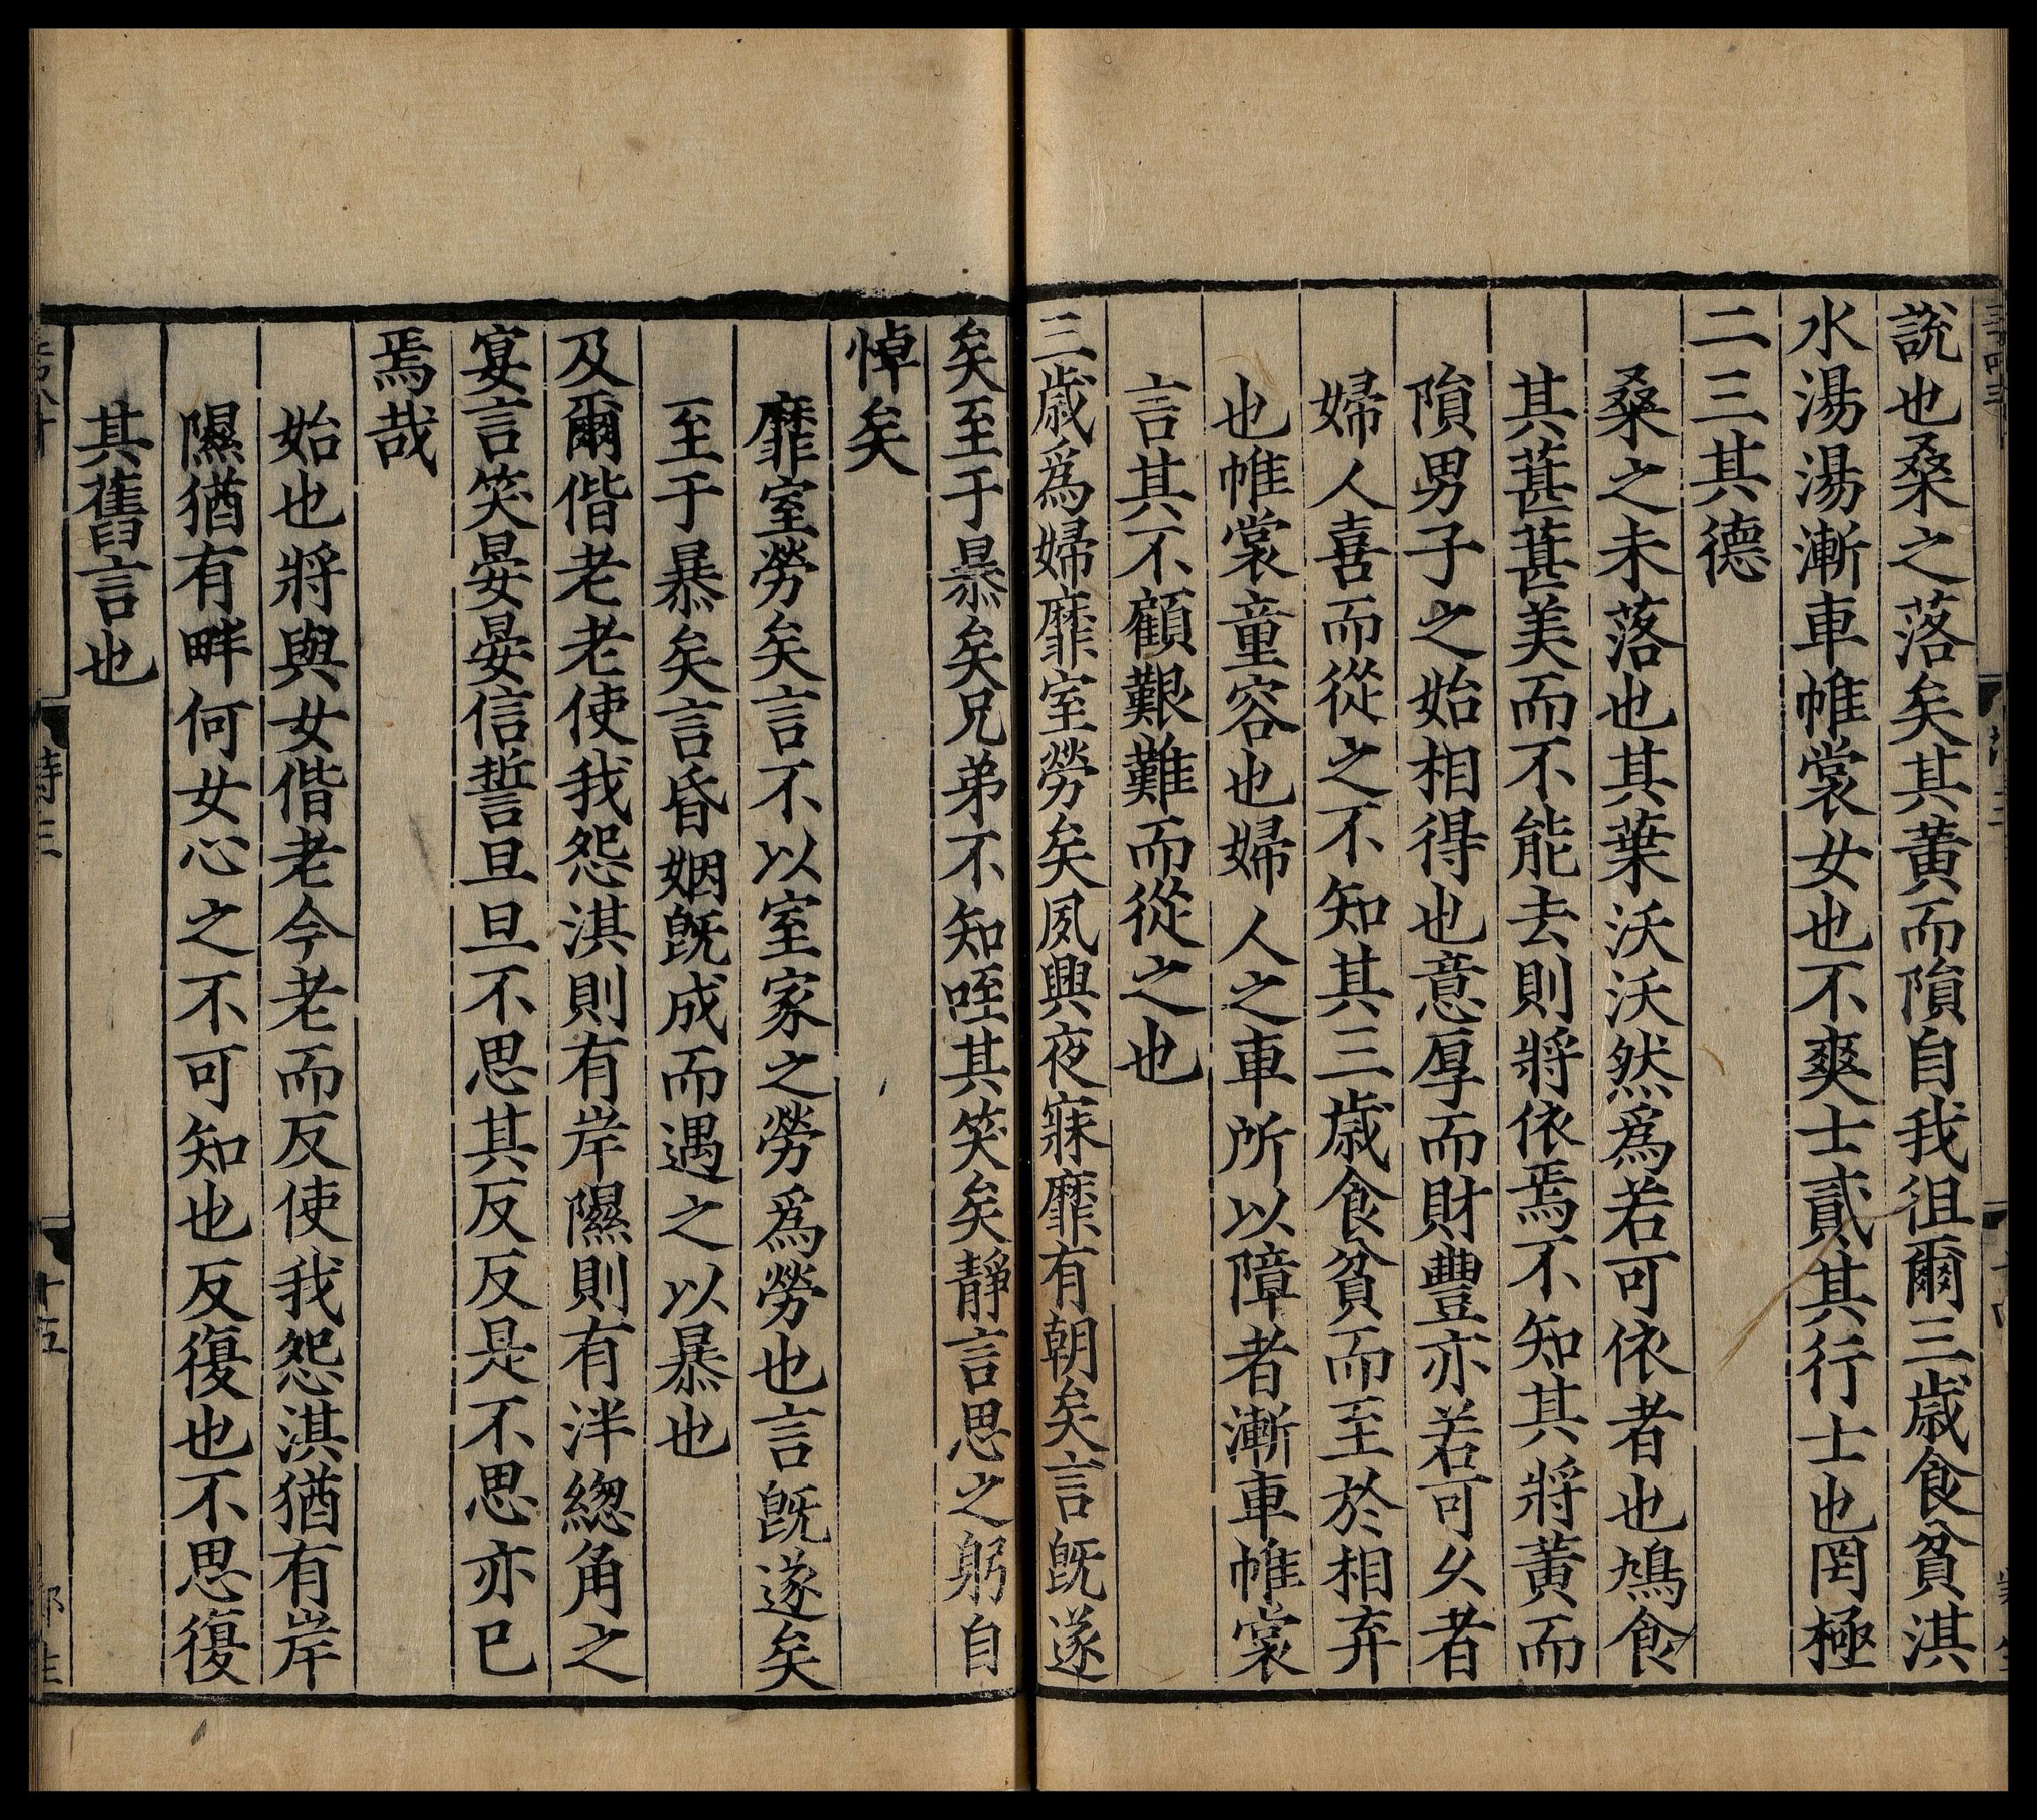 說也桑之落矣其黃而隕自我徂爾三歲食貧淇
水湯湯漸車帷裳女也不爽士貳其行士也罔極
二三其德
桑之未落也其葉沃沃然爲若可依者也鳩食
其葚葚美而不能去則將依焉不知其將黃而
隕男子之始相得也意厚而財豐亦若可久者
婦人喜而從之不知其三歲食貧而至於相弃
也帷裳童容也婦人之車所以障者漸車帷裳
言其不顧艱難而從之也
三歲爲婦靡室勞矣夙興夜寐靡有朝矣言旣遂
矣至于暴矣兄弟不知咥其笑矣靜言思之躬自
悼矣
靡室勞矣言不以室家之勞爲勞也言旣遂矣
至于暴矣言昏姻旣成而遇之以暴也
及爾偕老老使我怨淇則有岸隰則有泮緫角之
宴言笑晏晏信誓旦旦不思其反反是不思亦已
焉哉
始也將與女偕老今老而反使我怨淇猶有岸
隰猶有畔何女心之不可知也反復也不思復
其舊言也
詩三
十五